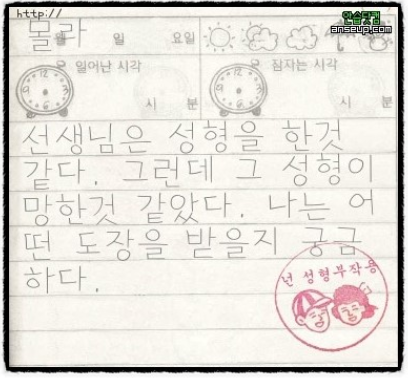 http://
연습닷컴
anseup.com
몰라
월 일 요일
일어난 시각 잠자는 시각
시 분 시 분
선생님은 성형을 한것
같다. 그런데 그 성형이
망한것 같았다. 나는 어
떤 도장을 받을지 궁금
하다.
넌 성형부작용